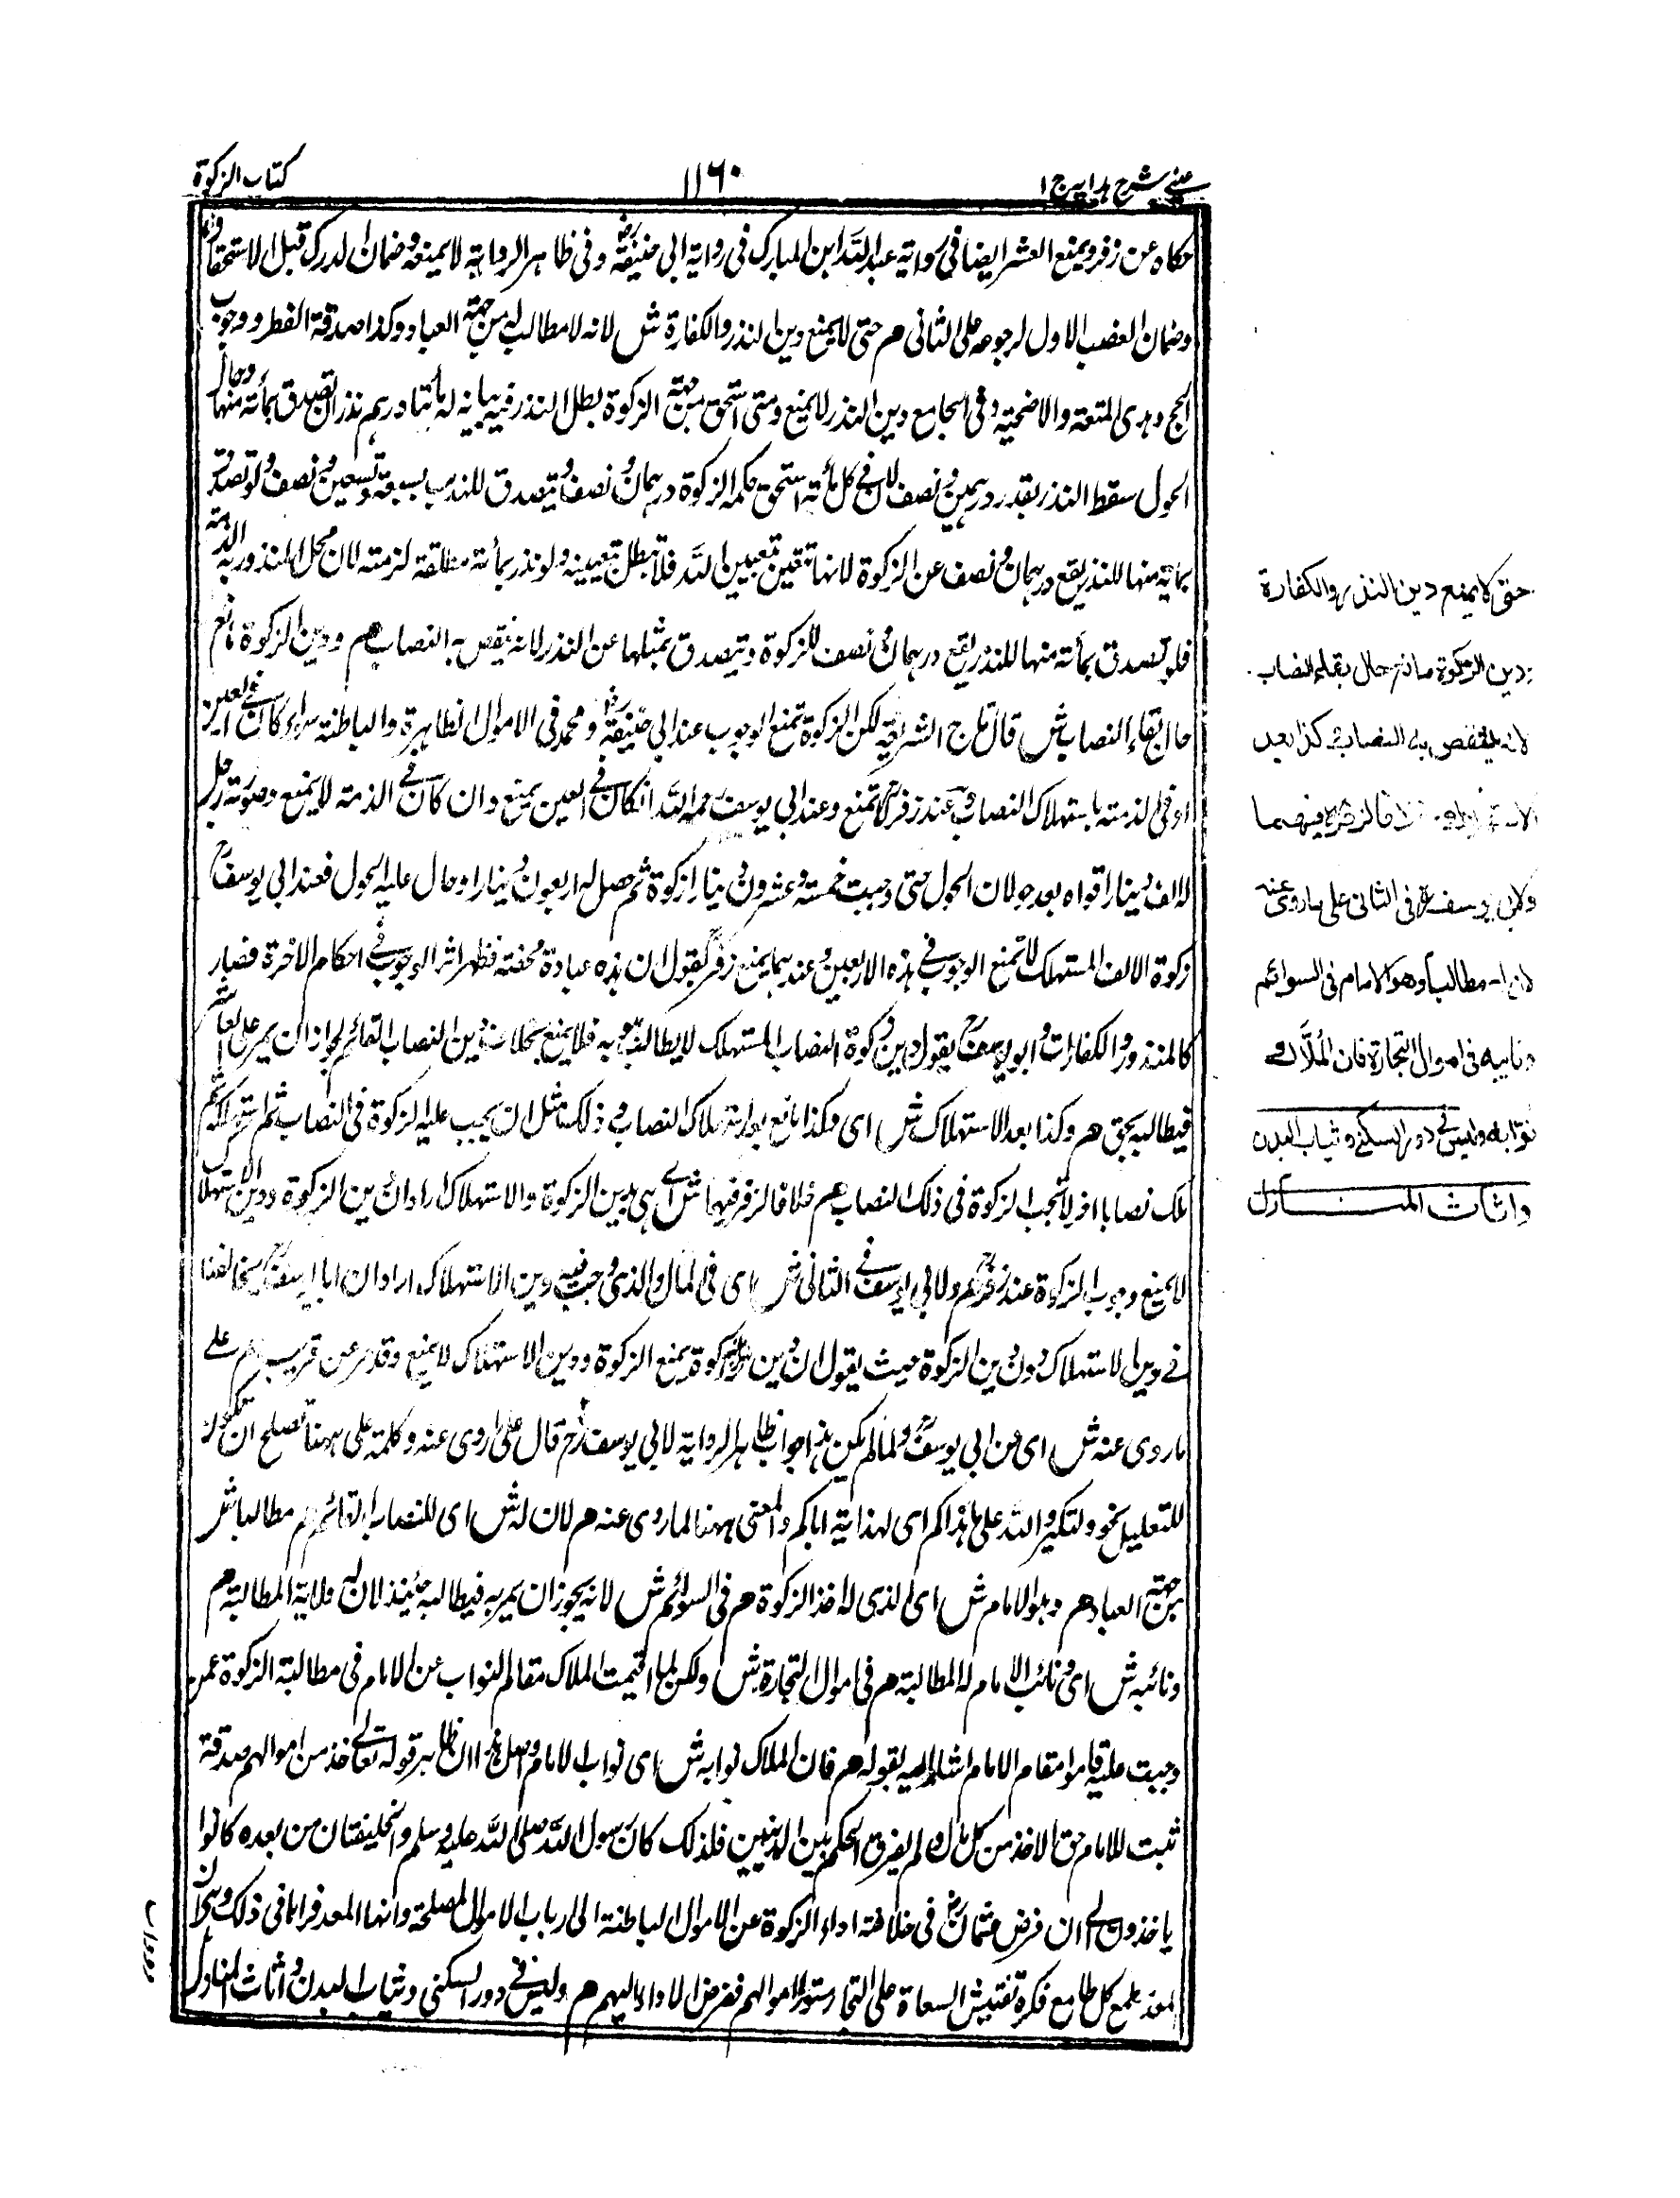 عينى شرح هدايه ج ١
١١٦٠
كتاب الزكوة
حكاه عن زفر ويمنع العشر ايضا فى رواية عبد الله ابن المبارك فى رواية ابى حنيفة رضـ وفى ظاهر الرواية لا يمنعه وضمان الدرك قبل الاستحقاق
وضمان الغصب الاول لرجوعه على الثانى هم حتى لا يمنع دين النذر والكفارة ش لانه لا مطالب له من جهة العباد وكذا صدقة الفطر ووجوب
الحج وهدى المتعة والاضحية وفى الجامع دين النذر لا يمنع ومتى استحق من جهة الزكوة بطل النذر فيه بيانه له مأتا درهم نذر ان يتصدق بمأئة منها وحال
الحول سقط النذر بقدر درهمين ونصف لان فى كل مأئة استحق حكم الزكوة درهمان ونصف ويتصدق للنذر بسبعة وتسعين ونصف ولو تصدق
بمائة منها للنذر يقع درهمان ونصف عن الزكوة لانها تتعين بتعيين الله فلا تبطل بتعيينه ولو نذر بمأئة مطلقة لزمته لان محل المنذور به الذمة
فلو تصدق بمأئة منها للنذر يقع درهمان ونصف للزكوة ويتصدق بمثلها عن النذر لانه ينقص به النصاب هم ودين الزكوة مانع
حال بقاء النصاب ش قال تاج الشريعة لكن الزكوة تمنع الوجوب عند ابى حنيفة رضـ ومحمد فى الاموال الظاهرة والباطنة سواء كان فى العين
او فى الذمة باستهلاك النصاب وعند زفر لا تمنع وعند ابى يوسف رحمه الله ان كان فى العين يمنع وان كان فى الذمة لا يمنع وصورته رجل
له الف دينار اقواه بعد حولان الحول حتى وجبت خمسة وعشرون دينارا زكوة ثم حصل له اربعون دينارا وحال عليه الحول فعند ابى يوسف رح
زكوة الالف المستهلك لا تمنع الوجوب فى هذه الاربعين وعندهما يمنع زفر يقول ان هذه عبادة محضة فظهر اثر الوجوب فى احكام الاخرة فصار
كالنذور والكفارات وابو يوسف يقول دين زكوة النصاب المستهلك لا يطالب به فلا يمنع بخلاف دين النصاب القائم لجواز ان يمر على العاشر
فيطالبه بحق هم وكذا بعد الاستهلاك ش اى وكذا مانع بعد استهلاك النصاب وذلك مثل ان يجب عليه الزكوة فى النصاب ثم استهلكه ثم
ملك نصابا اخر لا تجب الزكوة فى ذلك النصاب هم خلافا لزفر فيهما ش اى فى دين الزكوة والاستهلاك اراد ان دين الزكوة ودين الاستهلاك
لا يمنع وجوب الزكوة عند زفر هم ولابى يوسف فى الثانى ش اى فى المال الذى وجب فيه دين الاستهلاك اراد ان ابا يوسف يخالفنا
فى دين الاستهلاك دون دين الزكوة حيث يقول ان دين الزكوة يمنع الزكوة ودين الاستهلاك لا يمنع وقد مر عن قريب هم على
ما روى عنه ش اى عن ابى يوسف ولما لم يكن هذا جواب ظاهر الرواية لابى يوسف رح قال على ما روى عنه وكلمة على ههنا تصلح ان تكون
للتعليل نحو ولتكبروا الله على ما هداكم اى لهدايته اياكم والمعنى ههنا لما روى عنه هم لان له ش اى للنصاب القائم هم مطالبا ش
من جهة العباد هم وهو الامام ش اى الذى له اخذ الزكوة هم فى السوائم ش لانه يجوز ان يمر به فيطالبه حينئذ لان له ولاية المطالبة هم
ونائبه ش اى ونائب الامام له المطالبة هم فى اموال التجارة ش ولكن لما اقيمت الملاك مقام النواب عن الامام فى مطالبة الزكوة عمن
وجبت عليه قاموا مقام الامام اشار اليه بقوله هم فان الملاك نوابه ش اى نواب الامام واصل هذا ان ظاهر قوله تعالى خذ من اموالهم صدقة
ثبت للامام حق الاخذ من كل مال ولم يفرق الحكم بين المالين فلذلك كان رسول الله صلى الله عليه وسلم والخليفتان من بعده كانوا
ياخذون الى ان فرض عثمان رضـ فى خلافته اداء الزكوة عن الاموال الباطنة الى ارباب الاموال لمصلحة
كل طامع فكره تفتيش السعاة على التجار مستور اموالهم ففرض الاداء اليهم هم وليس فى دور السكنى وثياب البدن واثاث المنازل
حتى لا يمنع دين النذر والكفارة
ودين الزكوة مانع حال بقاء النصاب
لانه ينتقص به النصاب وكذا بعد
الاستهلاك خلافا لزفر فيهما
ولابى يوسف رح فى الثانى على ما روى عنه
لان له مطالبا وهو الامام فى السوائم
ونائبه فى اموال التجارة فان الملاك
نوابه وليس فى دور السكنى وثياب البدن
واثاث المنازل